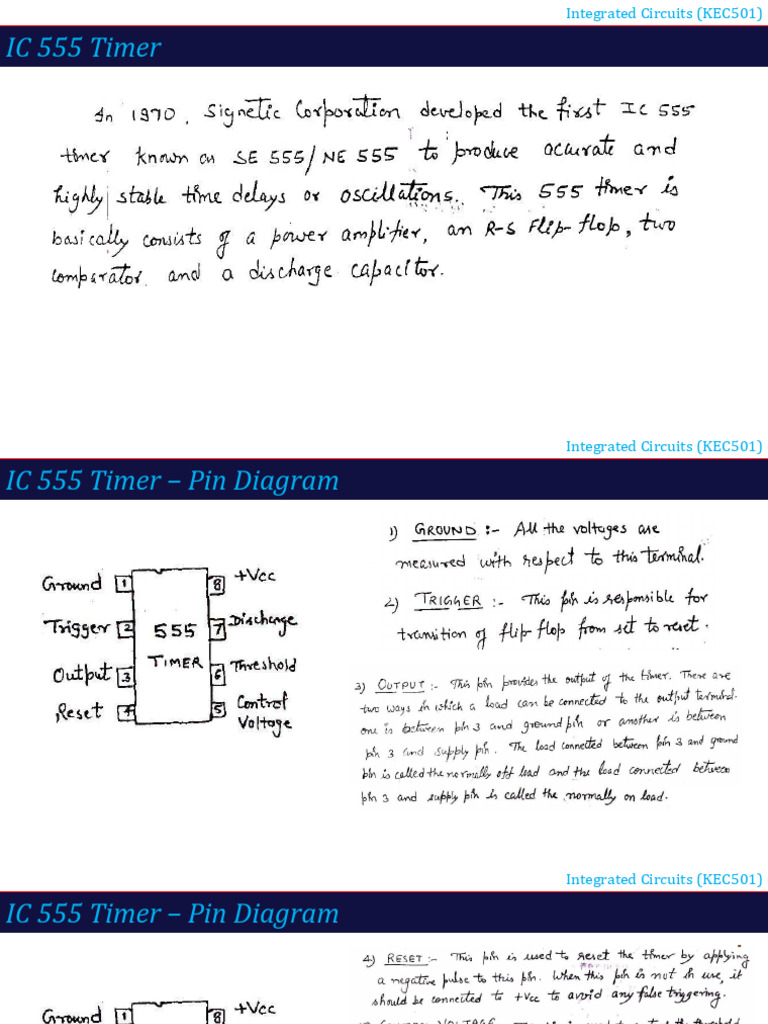 Integrated Circuits (KEC501)
IC 555 Timer
In 1970, Signetic Corporation developed the first IC 555
timer known as SE 555/NE 555 to produce accurate and
highly stable time delays or oscillations. This 555 timer is
basically consists of a power amplifier, an R-S flip-flop, two
comparator and a discharge capacitor.
Integrated Circuits (KEC501)
IC 555 Timer – Pin Diagram
Ground 1
Trigger 2
Output 3
Reset 4
555
TIMER
8 +Vcc
7 Discharge
6 Threshold
5 Control
Voltage
1) GROUND :- All the voltages are
measured with respect to this terminal.
2) TRIGGER :- This pin is responsible for
transition of flip flop from set to reset.
3) OUTPUT :- This pin provides the output of the timer. There are
two ways in which a load can be connected to the output terminal.
one is between pin 3 and ground pin or another is between
pin 3 and supply pin. The load connected between pin 3 and ground
pin is called the normally off load and the load connected between
pin 3 and supply pin is called the normally on load.
Integrated Circuits (KEC501)
IC 555 Timer – Pin Diagram
Ground 1
8 +Vcc
4) RESET :- This pin is used to reset the timer by applying
a negative pulse to this pin. When this pin is not in use, it
should be connected to +Vcc to avoid any false triggering.